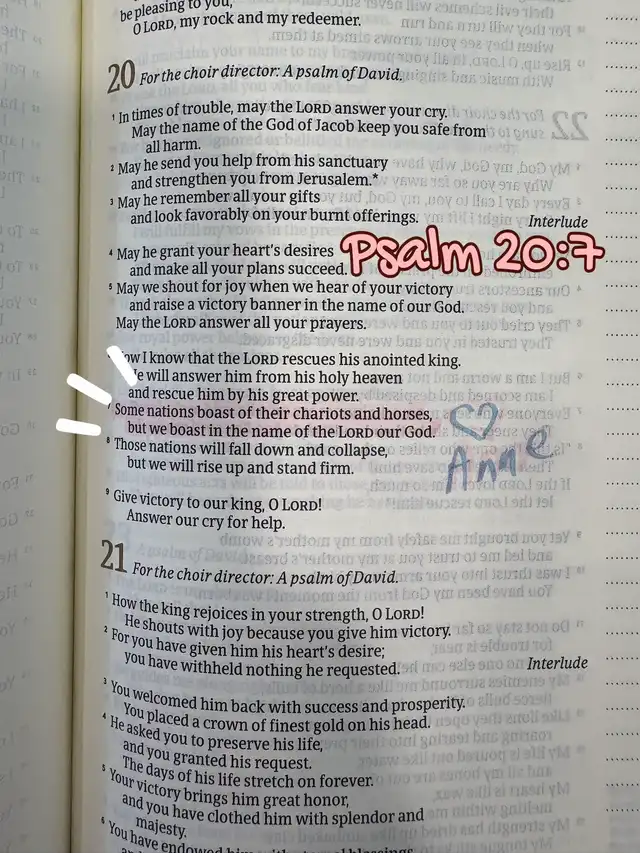 be pleasing to you,
O LORD, my rock and my redeemer.
20 For the choir director: A psalm of David.
1 In times of trouble, may the LORD answer your cry.
May the name of the God of Jacob keep you safe from
all harm.
2 May he send you help from his sanctuary
and strengthen you from Jerusalem.*
3 May he remember all your gifts
and look favorably on your burnt offerings. Interlude
4 May he grant your heart's desires
and make all your plans succeed.
Psalm 20:7
5 May we shout for joy when we hear of your victory
and raise a victory banner in the name of our God.
May the LORD answer all your prayers.
ow I know that the LORD rescues his anointed king.
e will answer him from his holy heaven
and rescue him by his great power.
7 Some nations boast of their chariots and horses,
but we boast in the name of the LORD our God.
8 Those nations will fall down and collapse,
but we will rise up and stand firm.
9 Give victory to our king, O LORD!
Answer our cry for help.
21 For the choir director: A psalm of David.
1 How the king rejoices in your strength, O LORD!
He shouts with joy because you give him victory.
2 For you have given him his heart's desire;
you have withheld nothing he requested. Interlude
3 You welcomed him back with success and prosperity.
You placed a crown of finest gold on his head.
4 He asked you to preserve his life,
and you granted his request.
The days of his life stretch on forever.
5 Your victory brings him great honor,
and you have clothed him with splendor and
majesty.
6 You have endowed him with eternal blessings